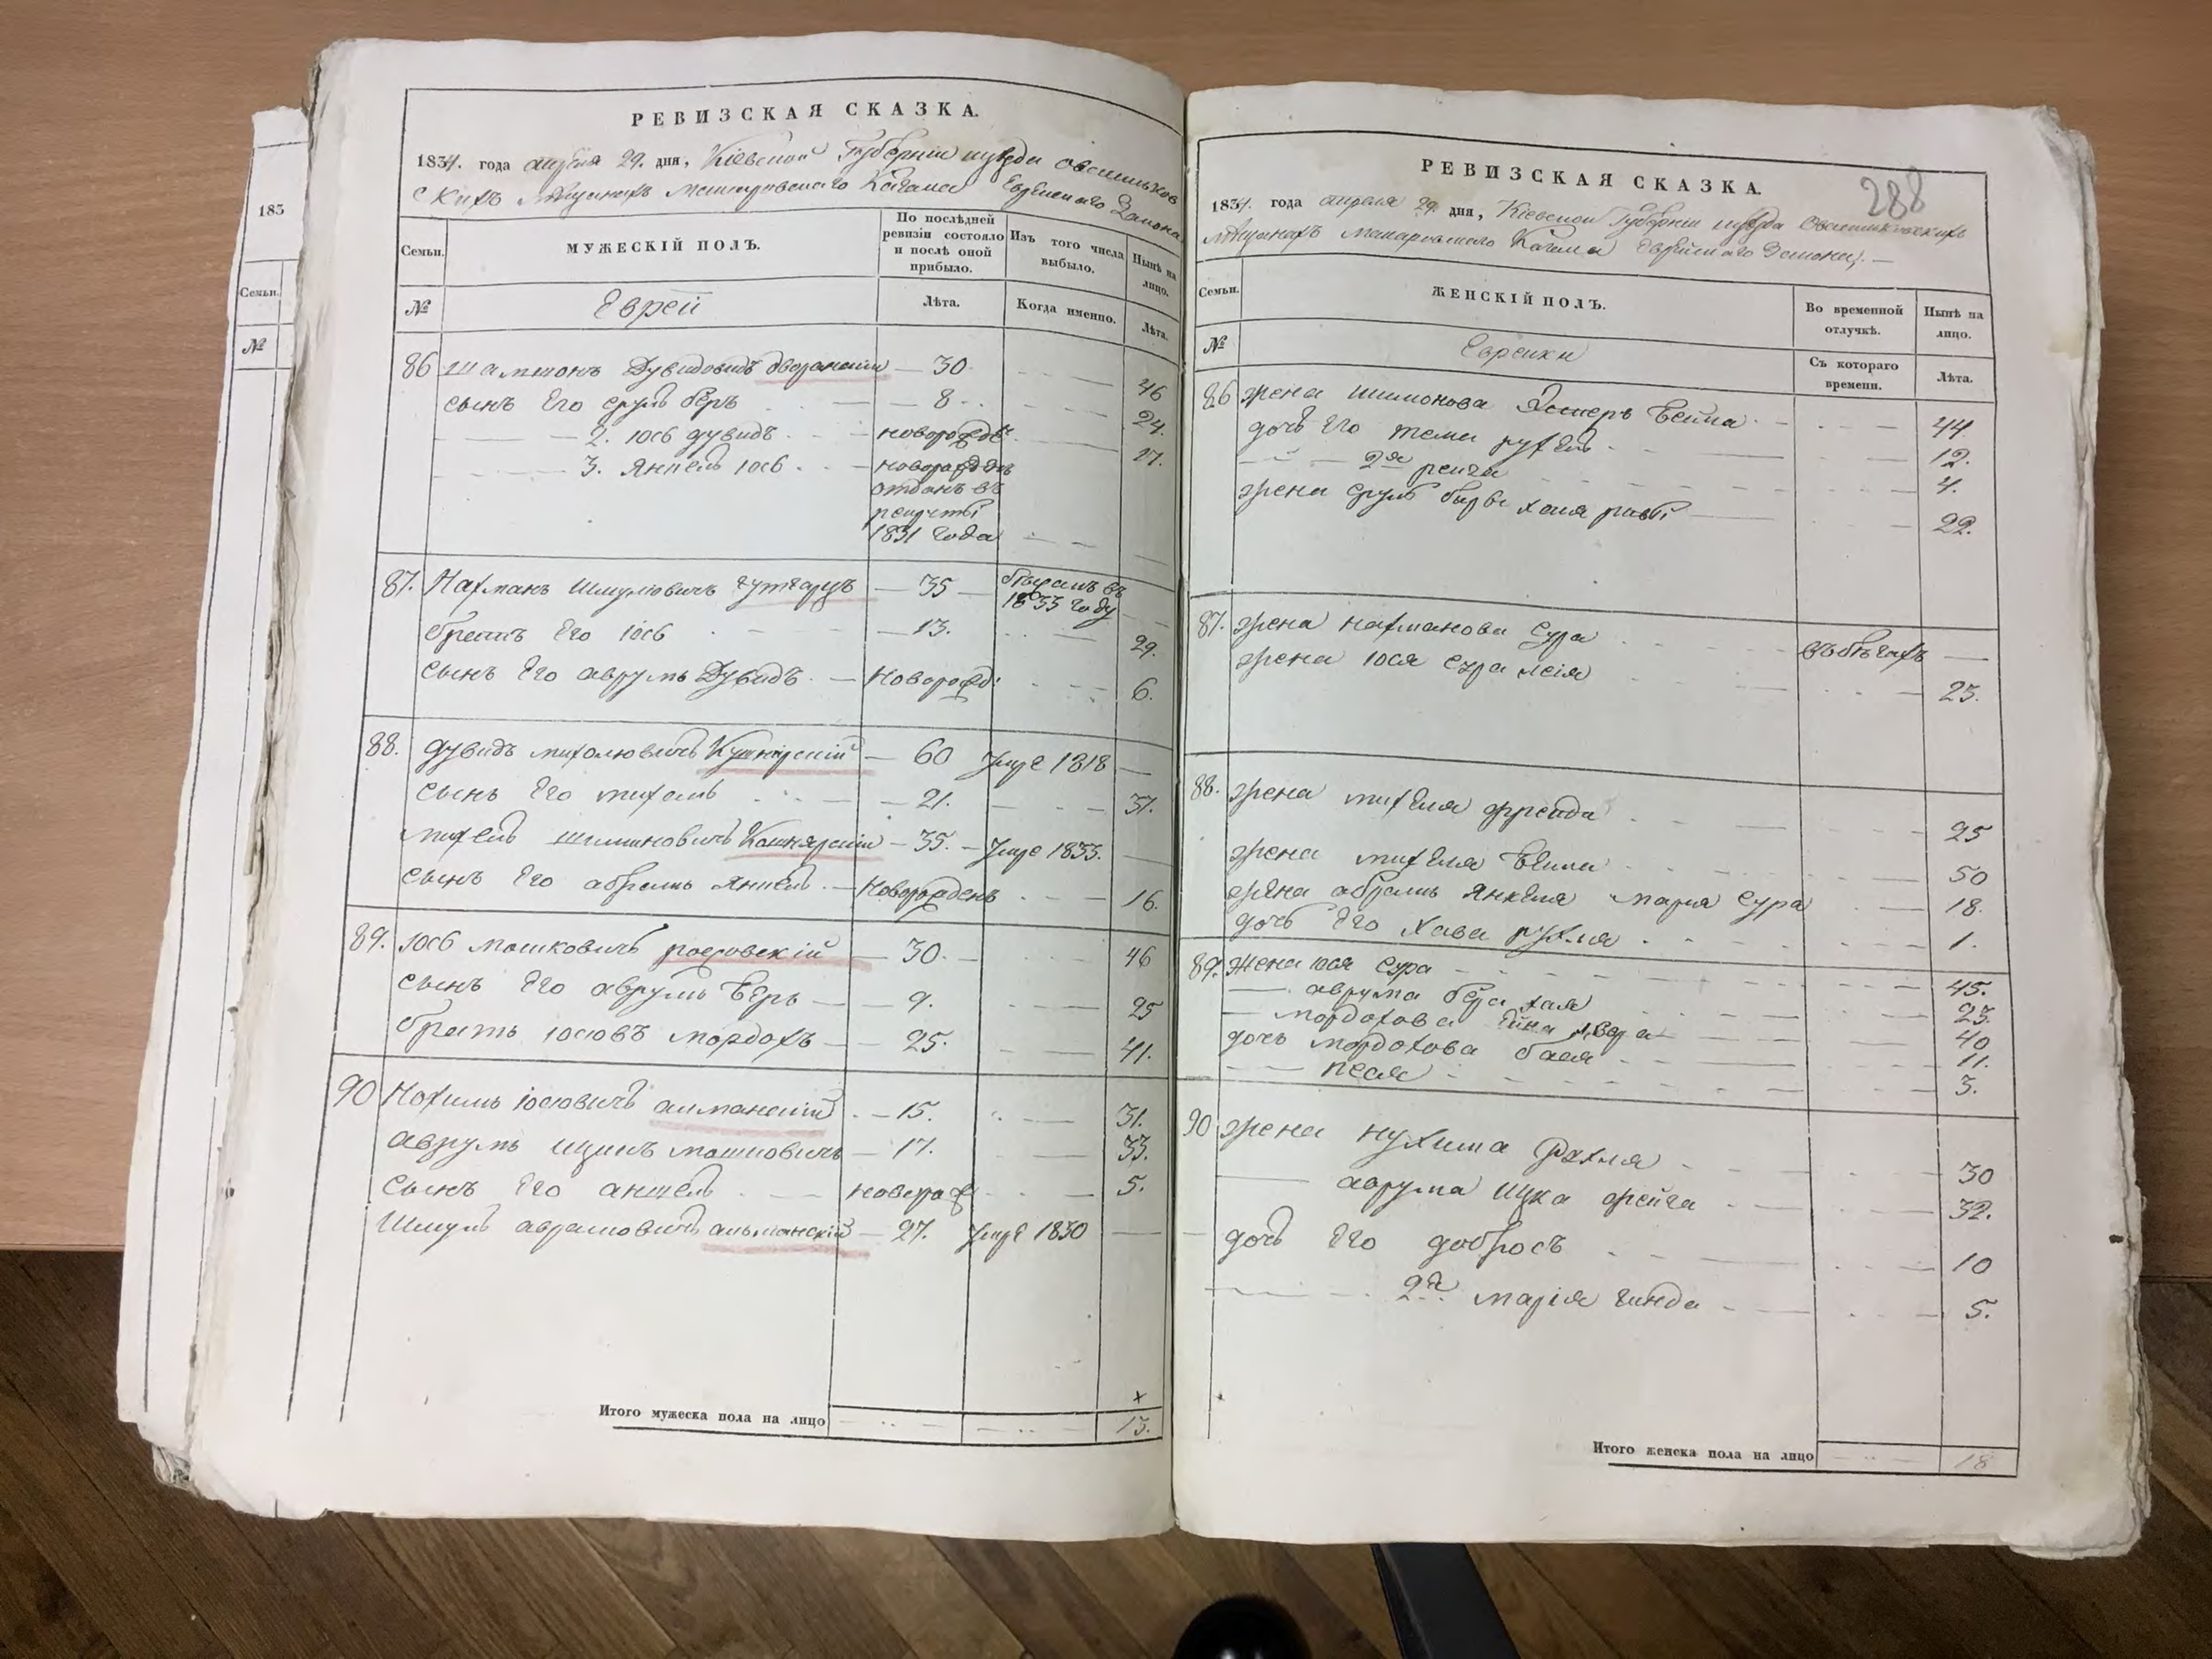 183
Семьи.
№
РЕВИЗСКАЯ СКАЗКА.
1834. года апреля 29. дня, Кіевской Губерніи
скихъ мѣщанахъ Макаровскаго Кагала Еврейскаго Закона
Семьи.
МУЖЕСКІЙ ПОЛЪ.
По послѣдней ревизіи состояло и послѣ оной прибыло.
Изъ того числа выбыло.
Нынѣ на лицо.
№
Еврей
Лѣта.
Когда именно.
Лѣта.
86 Шамшонъ Дувидовичъ — 30 46
сынъ Его Сруль Беръ — 8 24.
2. Іосб дувидъ новорожде 17.
3. Янкель Іосб новорожден
отданъ въ
рекруты
1831 года
87. Нахманъ Шмулiовичъ — 35 — въ
1833 году
братъ Его Іосб — 13. 29.
сынъ Его аврумъ Дувидъ — Новорожд: 6.
88. дувидъ михалювичъ Кушнирскій — 60 Умре 1818 —
сынъ Его михель — 21. 37.
михель шлимиовичъ Кашнярскій — 35. — Умре 1833.
сынъ Его абрамъ Янкель — Новорожденъ 16.
89. Іосб мошковичъ — 30. — 46
сынъ Его аврумъ Беръ — 9. 25
братъ Іосiовъ мордохъ — 25. 41.
90 Нохимъ Іосiовичъ алманскій — 15. 31.
аврумъ ицикъ мошковичъ — 17. 33.
сынъ Его аншель — новорож 5.
Шмуль аврамовичъ альманскій — 27. Умре 1830 —
Итого мужеска пола на лицо 13.
288
РЕВИЗСКАЯ СКАЗКА.
1834. года апреля 29. дня, Кіевской Губерніи
мѣщанахъ Макаровскаго Кагала Еврейскаго Закона. —
Семьи.
ЖЕНСКІЙ ПОЛЪ.
Во временной отлучкѣ.
Нынѣ на лицо.
№
Еврейки
Съ котораго времени.
Лѣта.
86 жена Шимонова Бейла 44
дочь Его рухель 12.
2я 4.
жена Сруль 22.
87. жена нахманова Сура въ бѣгахъ —
жена Іося Сура лея 23.
88. жена михеля фрейда 25
жена михеля Бейла 50
жена абрамъ Янкеля мария Сура 18.
дочь Его Хава рухля 1.
89. Жена Іося Сура 45.
— аврума бера хая 23.
— мордохова 40
дочь мордохова бася 11.
— песя 3.
90 жена нухима Рахля 30
— аврума Ицка фейга 32.
дочь Его добросъ 10
2я марія гинда 5.
Итого женска пола на лицо 18